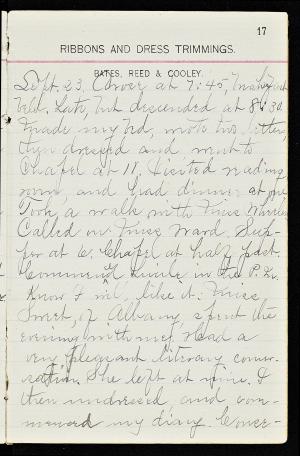 17
RIBBONS AND DRESS TRIMMINGS.
BATES, REED & COOLEY.
Sept. 23. Arose at 7:45,
late, but descended at 8:30
Made my bed, wrote two letters,
then dressed and went to
Chapel at 11. Visited reading
room, and had dinner at one
Took a walk with Miss
Called on Miss Ward. Sup-
per at 6. Chapel at half past.
Commenced in the
Know I will like it. Miss
Sweet, of Albany spent the
evening with me. Had a
very pleasant literary conver-
sation. She left at nine. I
then undressed and com-
menced my diary.